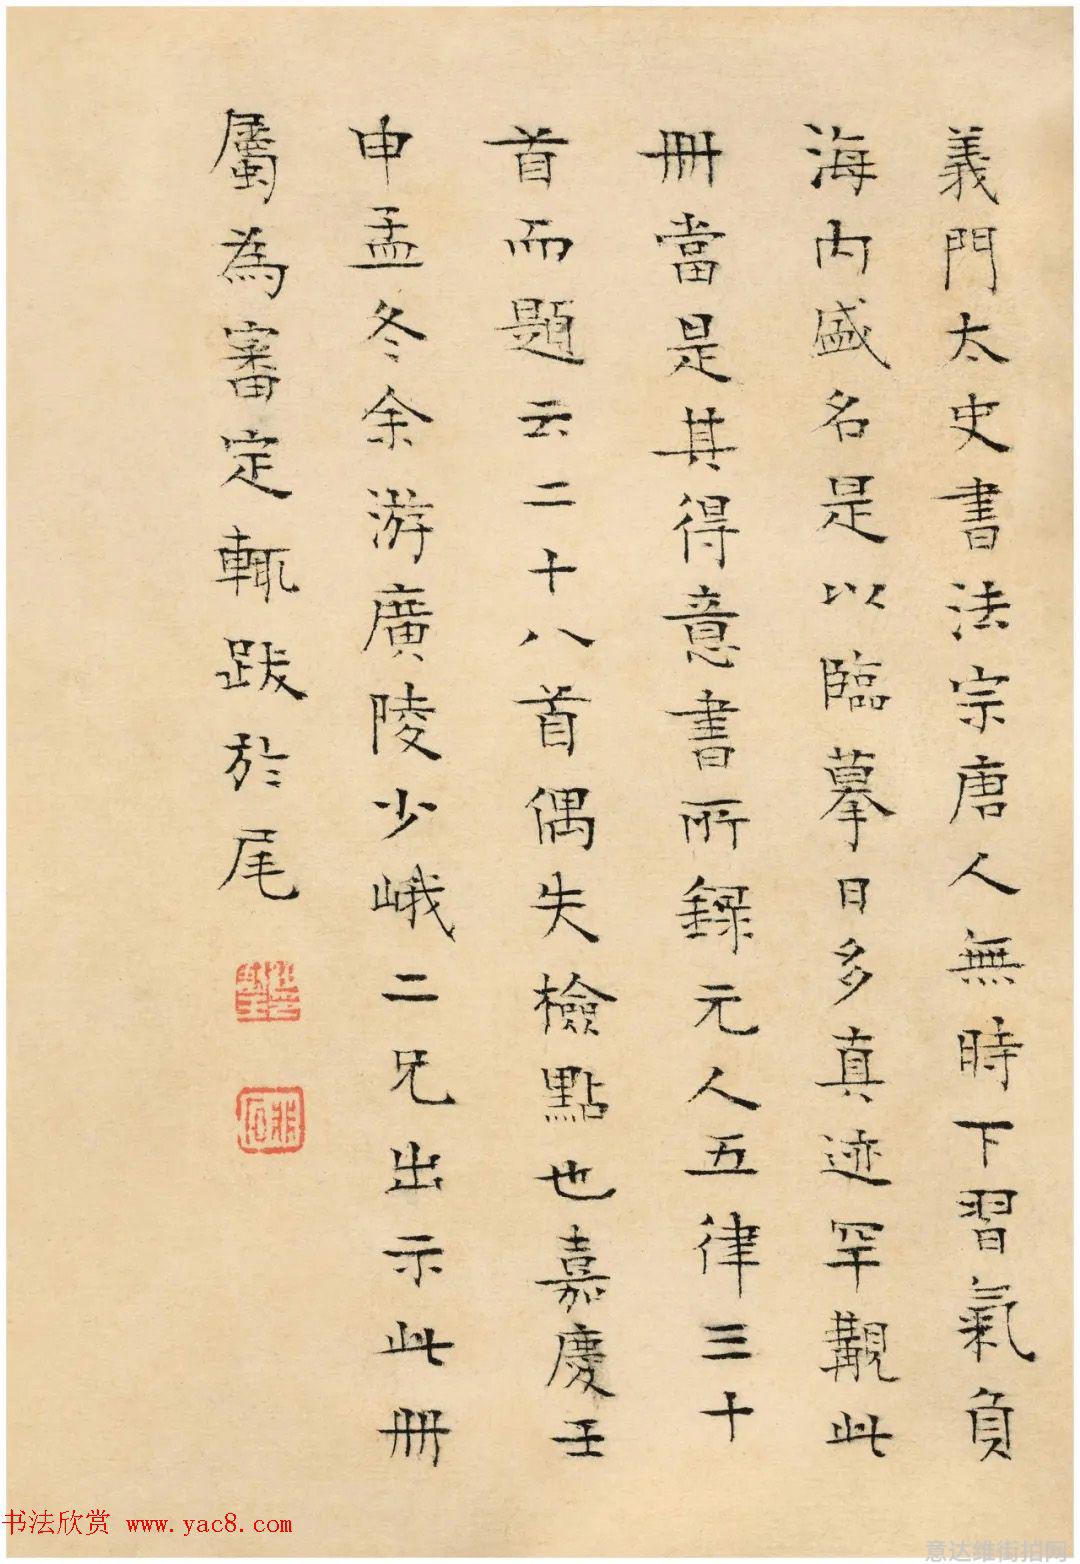 義門太史書法宗唐人無時下習氣負
海内盛名是以臨摹日多真迹罕觀此
冊當是其得意書所録元人五律三十
首而題云二十八首偶失檢點也嘉慶壬
申孟冬余游廣陵少峨二兄出示此冊
屬為審定輒跋於尾
书法欣赏 www.yac8.com
意达维街拍网